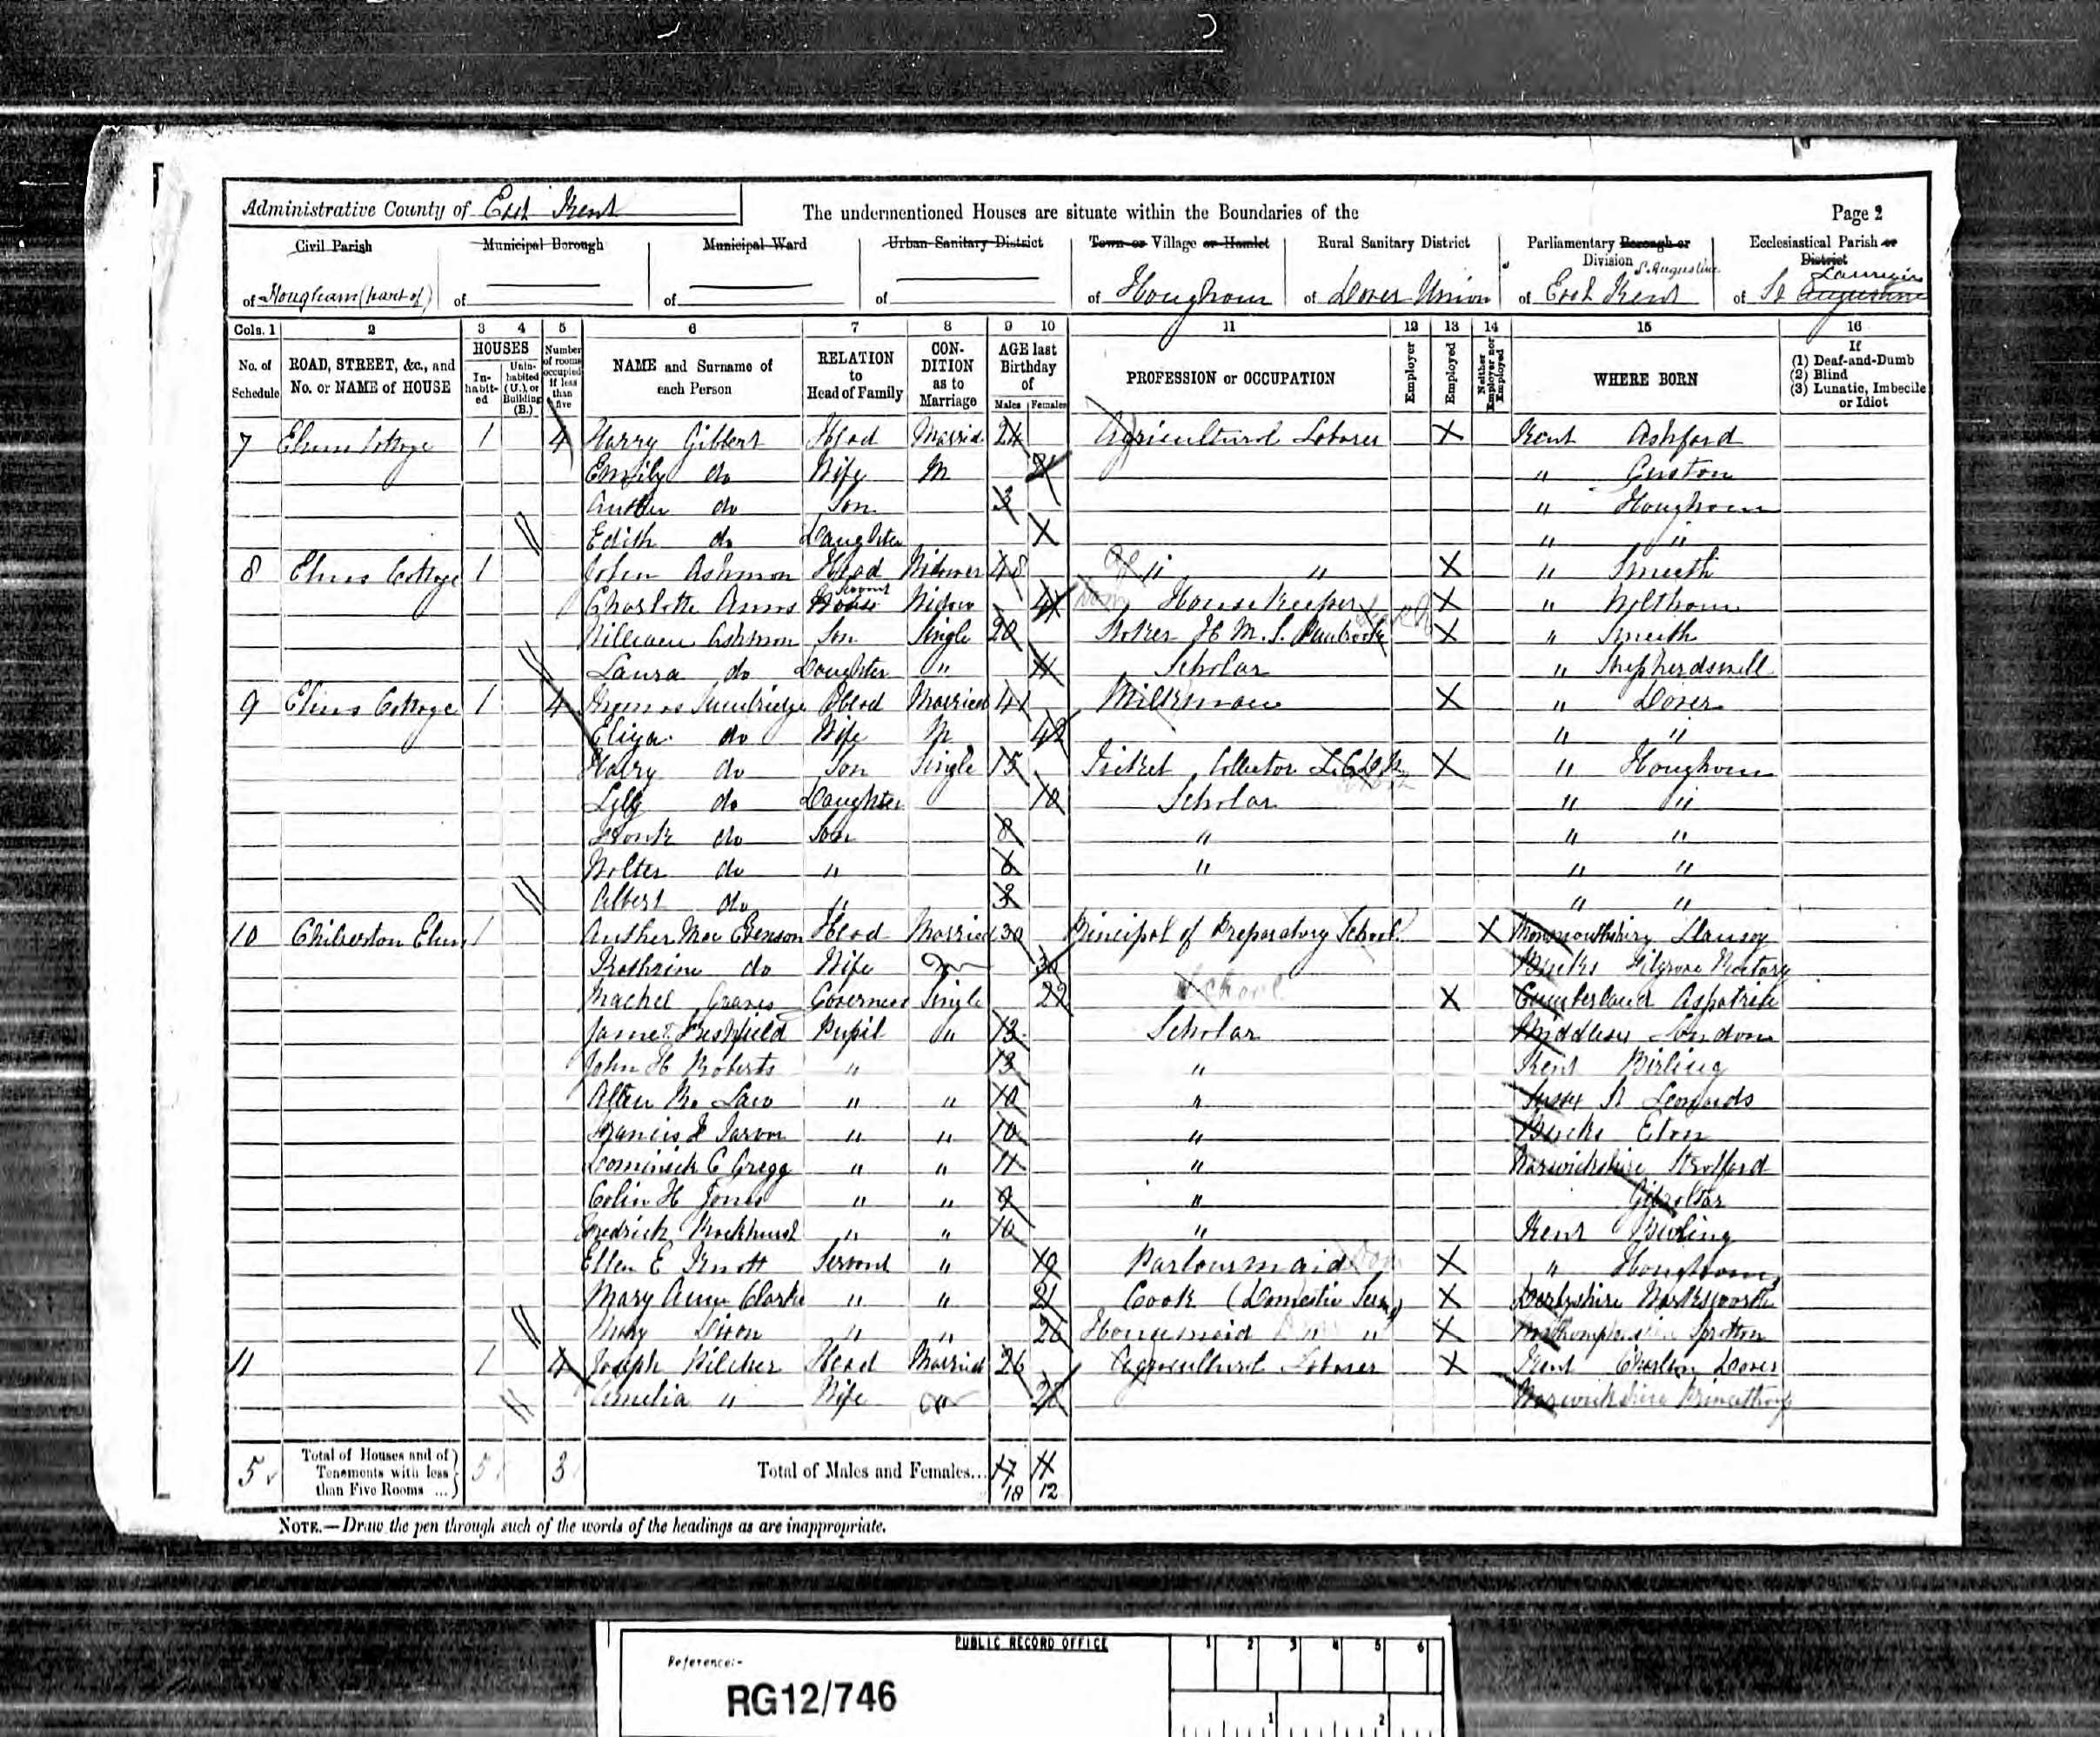 Administrative County of East Kent
The undermentioned Houses are situate within the Boundaries of the
Page 2
Civil Parish of Hougham (part of)
Municipal Borough of
Municipal Ward of
Urban Sanitary District of
Town or Village or Hamlet of Hougham
Rural Sanitary District of Dover Union
Parliamentary Borough or Division of East Kent St Augustine
Ecclesiastical Parish or District of St Augustine
Cols. 1 2 3 4 5 6 7 8 9 10 11 12 13 14 15 16
No. of Schedule
ROAD, STREET, &c., and No. or NAME of HOUSE
HOUSES
Inhabited
Uninhabited (U.) or Building (B.)
Number of rooms occupied if less than five
NAME and Surname of each Person
RELATION to Head of Family
CONDITION as to Marriage
AGE last Birthday of
Males Females
PROFESSION or OCCUPATION
Employer
Employed
Neither Employer nor Employed
WHERE BORN
If (1) Deaf-and-Dumb (2) Blind (3) Lunatic, Imbecile or Idiot
7 Elms Cottage 1 4 Harry Gibbens Head Married 24 Agricultural Laborer X Kent Ashford
Emily do Wife M " Guston
do Son 3 " Hougham
Edith do Daughter " "
8 Elms Cottage 1 John Ashmon Head Widower 48 Ag " " X " Smeeth
Charlotte Amos Servant Widow 47 House Keeper X "
William Ashmon Son Single 20 Stoker H.M.S. X " Smeeth
Laura do Daughter " 11 Scholar " Shepherdswell
9 Elms Cottage 1 4 Thomas Head Married 41 Milkman X " Dover
Eliza do Wife M 42 " "
Harry do Son Single 15 Ticket Collector X " Hougham
Lily do Daughter 10 Scholar " "
Frank do Son 8 " " "
Walter do " 6 " " "
Albert do " 3 " "
10 Chilverton Elms 1 Evenson Head Married 30 Principal of Preparatory School X Monmouthshire
Kathrine do Wife m 30 Bucks Rectory
Rachel Graves Governess Single 22 School X Cumberland Aspatria
Pupil " 13 Scholar Middlesex London
John H Roberts " 13 " Kent Birling
Law " " 10 " Sussex St Leonards
Francis " " 10 " Bucks Eton
Dominick C Gregg " " 11 " Warwickshire Stratford
Colin H Jones " " 9 " Gibraltar
Fredrick " " 10 " Kent Birling
Ellen E Knott Servant " 19 Parlourmaid X " Hougham
Mary Ann Clarke " " 21 Cook (Domestic Serv) X Derbyshire Wirksworth
Mary Dixon " " 26 Housemaid " " X Northamptonshire Spratton
11 1 4 Joseph Pilcher Head Married 26 Agricultural Laborer X Kent Charlton Dover
Amelia " Wife " Warwickshire Princethorpe
5 Total of Houses and of Tenements with less than Five Rooms ... 5 3 Total of Males and Females... 17 11
18 12
NOTE.—Draw the pen through such of the words of the headings as are inappropriate.
PUBLIC RECORD OFFICE
1 2 3 4 5 6
Reference:-
RG12/746
1 2